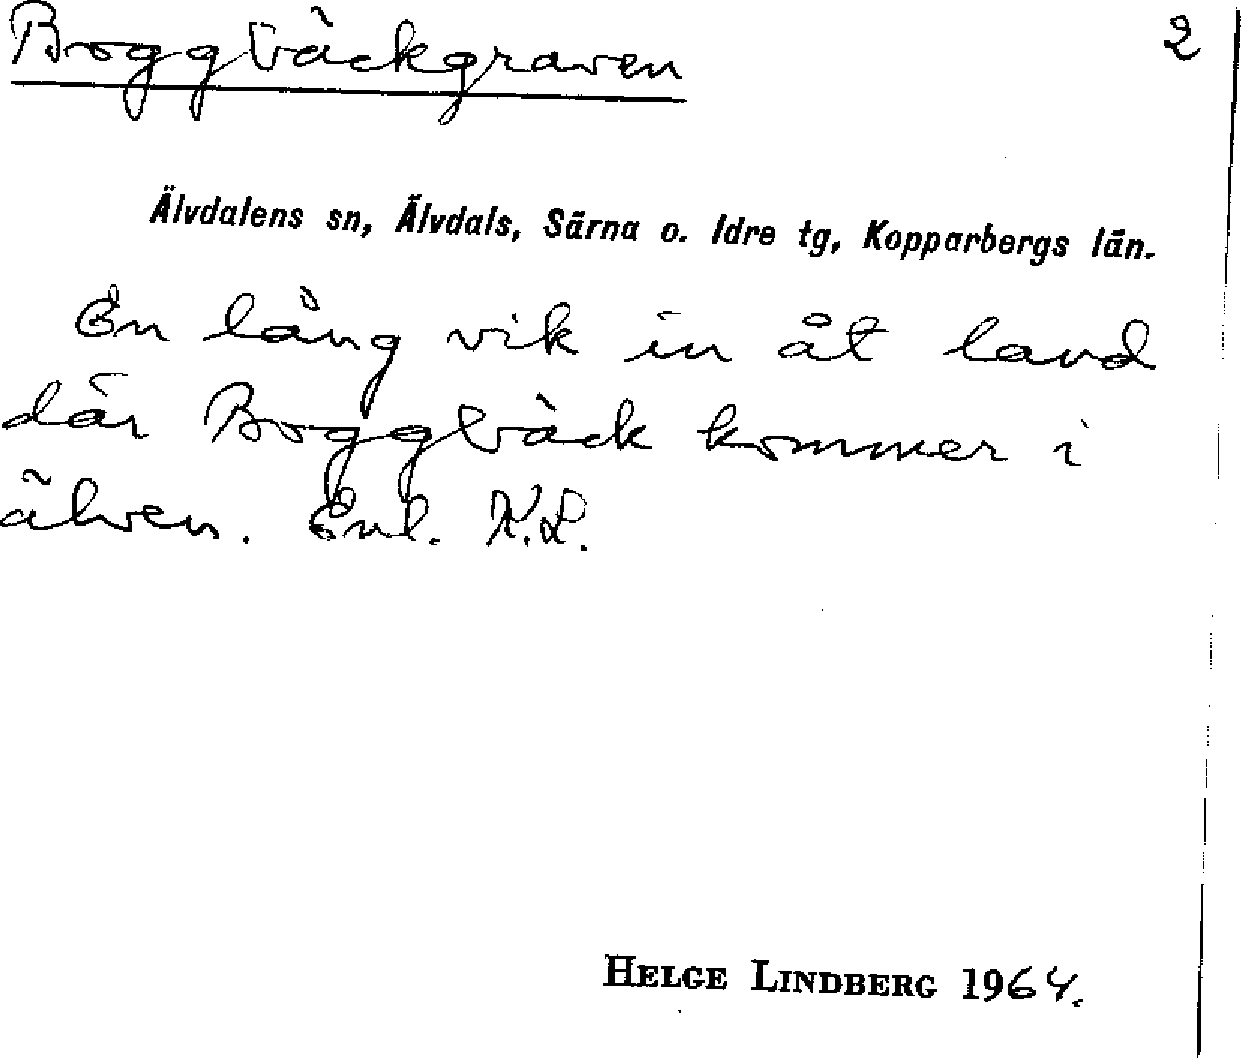 Boggbäckgraven 2
Älvdalens sn, Älvdals, Särna o. Idre tg, Kopparbergs län.
En lång vik in åt land
där Boggbäck kommer i
älven. Enl. K.L.
HELGE LINDBERG 1964.